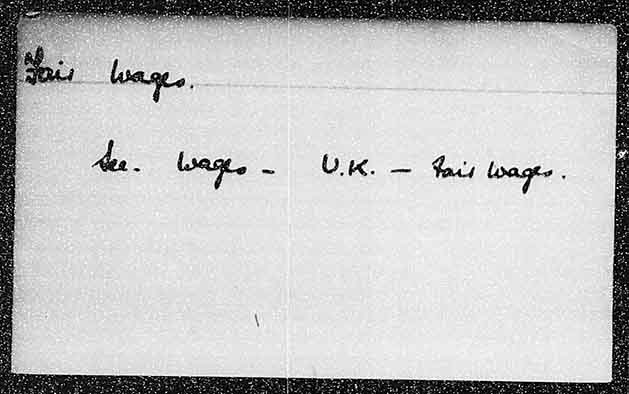 Fair Wages.
See. Wages - U.K. - Fair Wages.